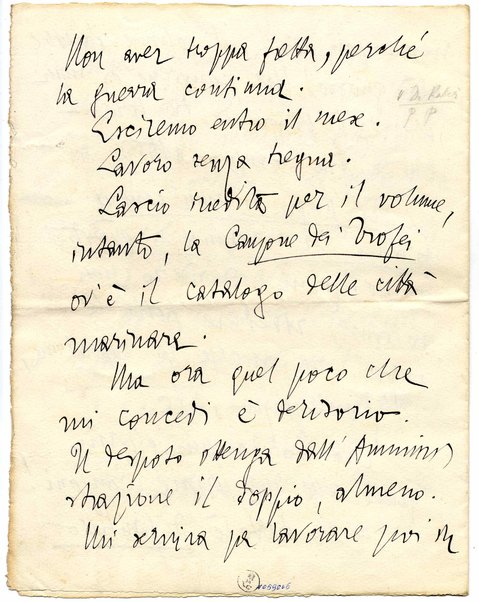 Non aver troppa fretta, perché
la guerra continua.
Esciremo entro il mese.
Lavoro senza tregua.
Lascio inedita per il volume,
intanto, la Canzone dei Trofei
ov'è il catalogo delle città
marinare.
Ma ora quel poco che
mi concedi è derisorio.
Il despoto ottenga dall'Ammini
strazione il doppio, almeno.
Mi servirà per lavorare più di